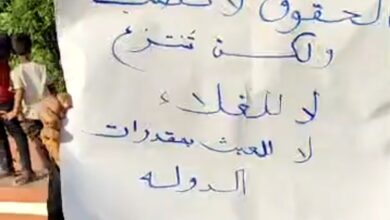 الحقوق لا
ولكن تنتزع
لا للغلاء
لا العبث بمقدرات
الدوله